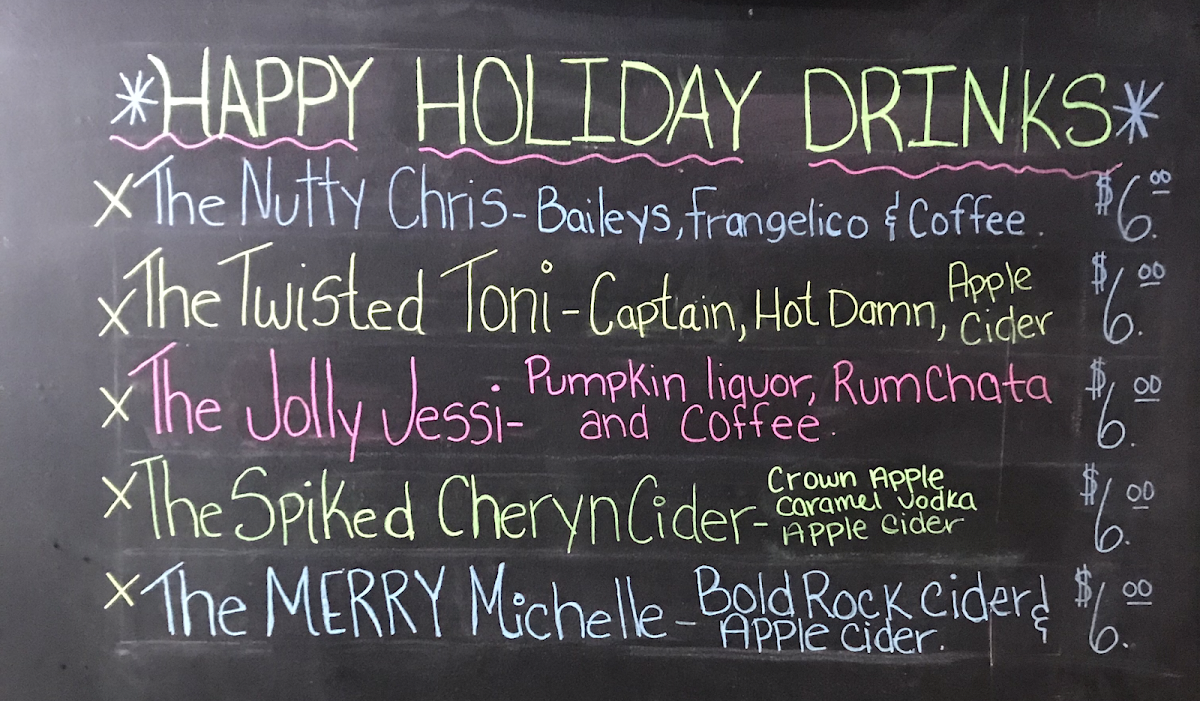 *HAPPY HOLIDAY DRINKS*
X The Nutty Chris - Baileys, Frangelico & Coffee. $6.00
X The Twisted Toni - Captain, Hot Damn, Apple Cider $6.00
X The Jolly Jessi - Pumpkin liquor, RumChata and Coffee. $6.00
X The Spiked Cheryn Cider - Crown Apple Caramel Vodka Apple Cider $6.00
X The MERRY Michelle - Bold Rock Cider & Apple Cider. $6.00